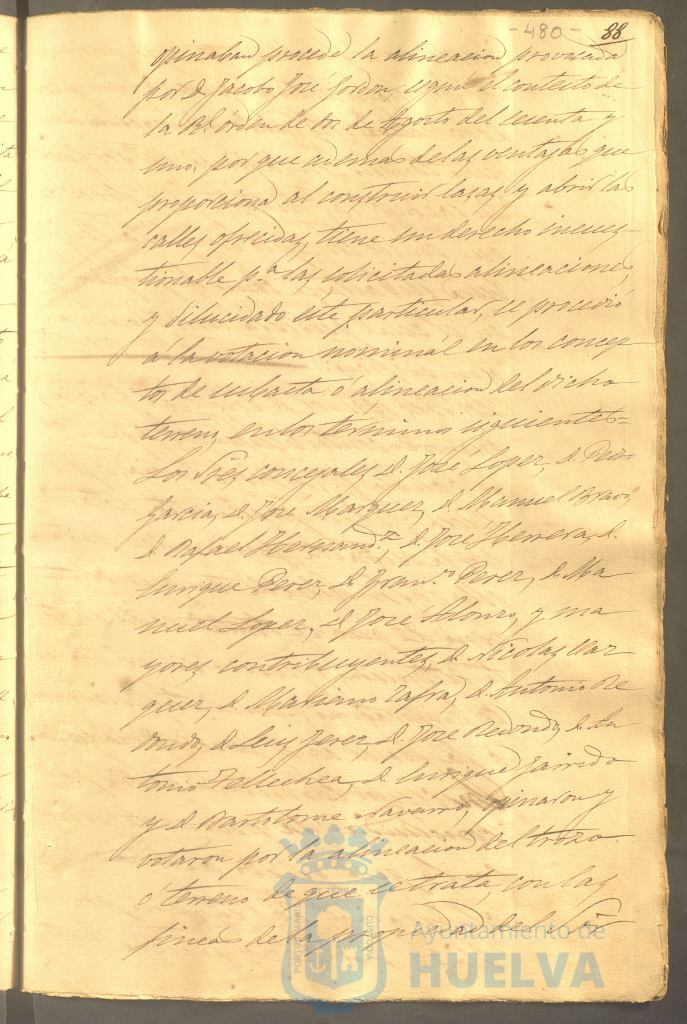 -480- 88
opinaban procede la alineacion provocada
por D. Jacobo José Jordon, segun el contesto de
la Rl. órden de dos de Agosto del sesenta y
uno, por que además de las ventajas que
proporciona al construir casas y abrir las
calles ofrecidas, tiene un derecho incues-
tionable pa. las solicitadas alineaciones,
y dilucidado este particular, se procedió
á la votacion nominal en los concep
tos de subasta ó alineacion del dicho
terreno, en los términos siguientes=
Los Sres. concejales D. José Lopez, D. Pedro
Garcia, D. José Marquez, D. Manuel Bravo,
D. Rafael Hernandz., D. José Herrera, D.
Enrique Perez, D. Franco. Perez, D. Ma
nuel Lopez, D. José Alonzo, y ma
yores contribuyentes, D. Nicolas Vaz
quez, D. Mariano Zafra, D. Antonio Re
dondo, D. Luis Jerez, D. José Redondo, D. An
tonio Tellechea, D. Enrique Garrido
y D. Bartolome Navarro, opinaron y
votaron por la alineacion del trozo
ó terreno de que se trata, con las
fincas de la propiedad de
Ayuntamiento de
HUELVA